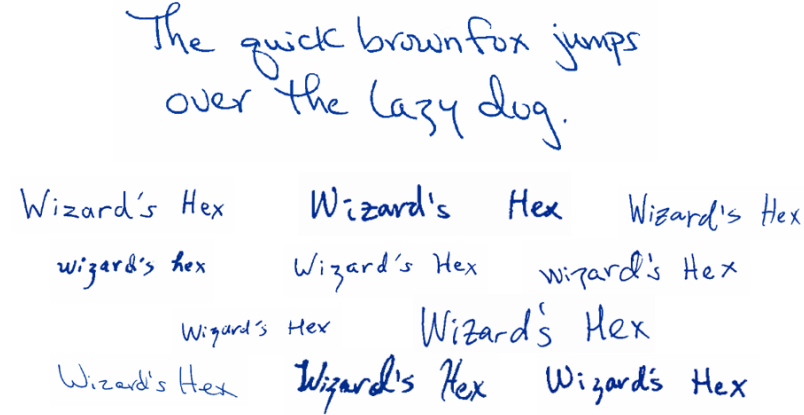 The quick brown fox jumps
over the lazy dog.
Wizard's Hex Wizard's Hex Wizard's Hex
wizard's hex Wizard's Hex wizard's Hex
Wizard's Hex Wizard's Hex
Wizard's Hex Wizard's Hex Wizard's Hex